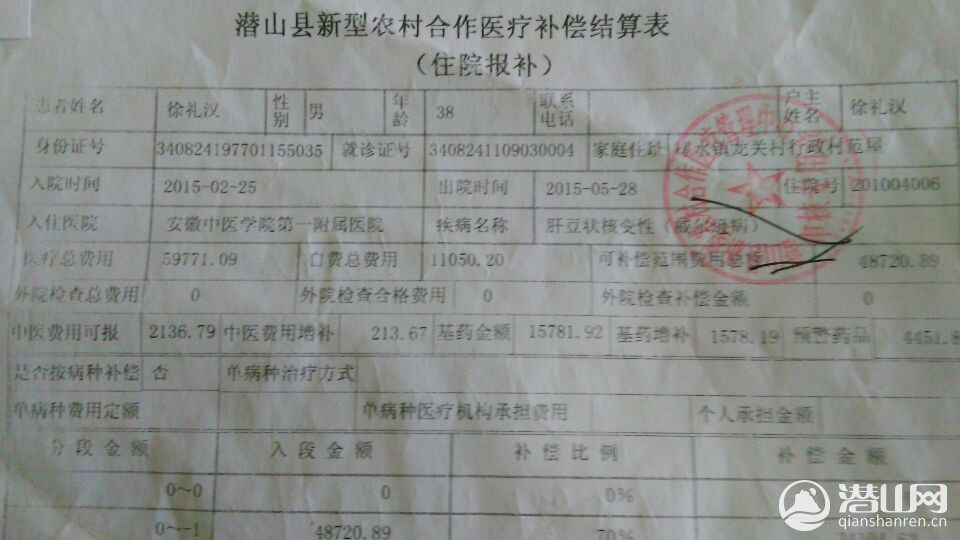 潜山县新型农村合作医疗补偿结算表
（住院报补）
患者姓名 徐礼汉 性别 男 年龄 38 联系电话 户主姓名 徐礼汉
身份证号 340824197701155035 就诊证号 3408241109030004 家庭住址 槎水镇龙关村行政村范屋
入院时间 2015-02-25 出院时间 2015-05-28 住院号 201004006
入住医院 安徽中医学院第一附属医院 疾病名称 肝豆状核变性（威尔逊病）
医疗总费用 59771.09 自费总费用 11050.20 可补偿范围费用总额 48720.89
外院检查总费用 0 外院检查合格费用 0 外院检查补偿金额 0
中医费用可报 2136.79 中医费用增补 213.67 基药金额 15781.92 基药增补 1578.19 预警药品 4451.8
是否按病种补偿 否 单病种治疗方式
单病种费用定额 单病种医疗机构承担费用 个人承担金额
分段金额 入段金额 补偿比例 补偿金额
0～0 0 0%
0～-1 48720.89 70%
潜山网
qianshanren.cn